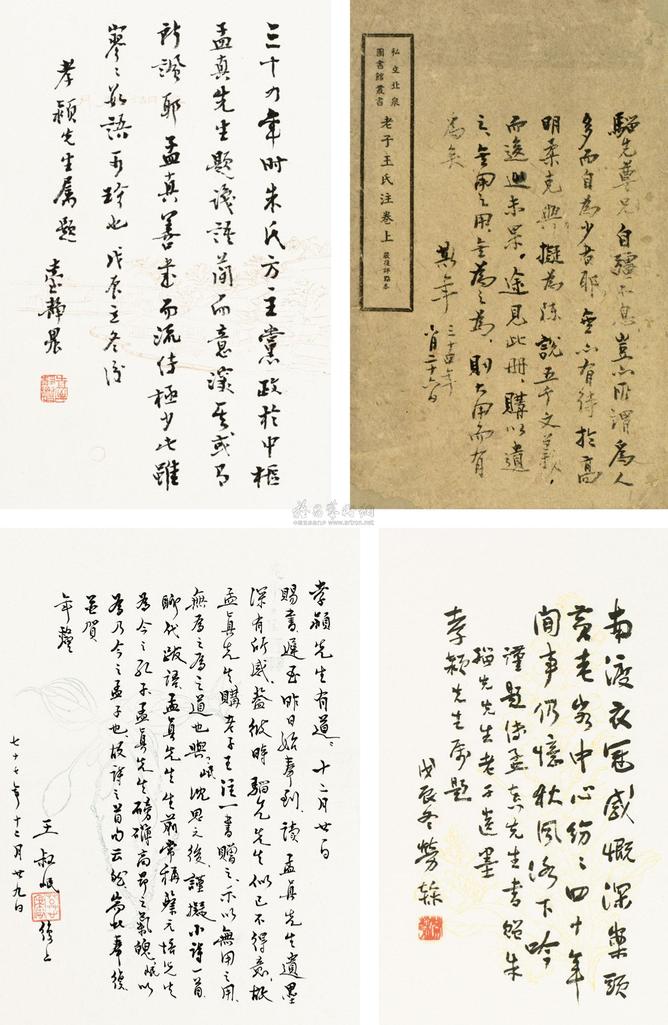 三十四年時朱氏方主黨政於中樞
孟真先生題識語簡而意深其或有
所諷耶孟真善書而流傳極少此雖
寥寥數語可珍也戊辰立冬後
孝穎先生屬題
臺靜農
私立北泉
圖書館叢書
老子王氏注卷上
嚴復評點本
騮先尊兄自彊不息豈所謂為人
多而自為少者耶無亦有待於高
明柔克與擬為陳說五千文義
而逡巡未果途見此冊購以遺
之無用之用無為之為則大用而有
為矣
斯年
三十四年
八月二十六日
孝穎先生有道十二月廿一日
賜書遲至昨日始奉到讀孟真先生遺墨
深有所感蓋彼時騮先先生似已不得意故
孟真先生購老子王注一書贈之示以無用之用
無為之為之道也與岷沈思之後謹擬小詩一首
聊代跋語孟真先生生前常稱蔡元培先生
為今之孔子孟真先生磅礴高昂之氣魄岷以
為乃今之孟子也故詩之首句云然耑此奉復
並賀
年釐
王叔岷
敬上
七十七年十二月廿九日
南渡衣冠感慨深案頭
黃老客中心紛紛四十年
間事仍憶秋風洛下吟
謹題傅孟真先生書貽朱
騮先先生老子遺墨
孝穎先生屬題
戊辰冬勞榦
www.artron.net